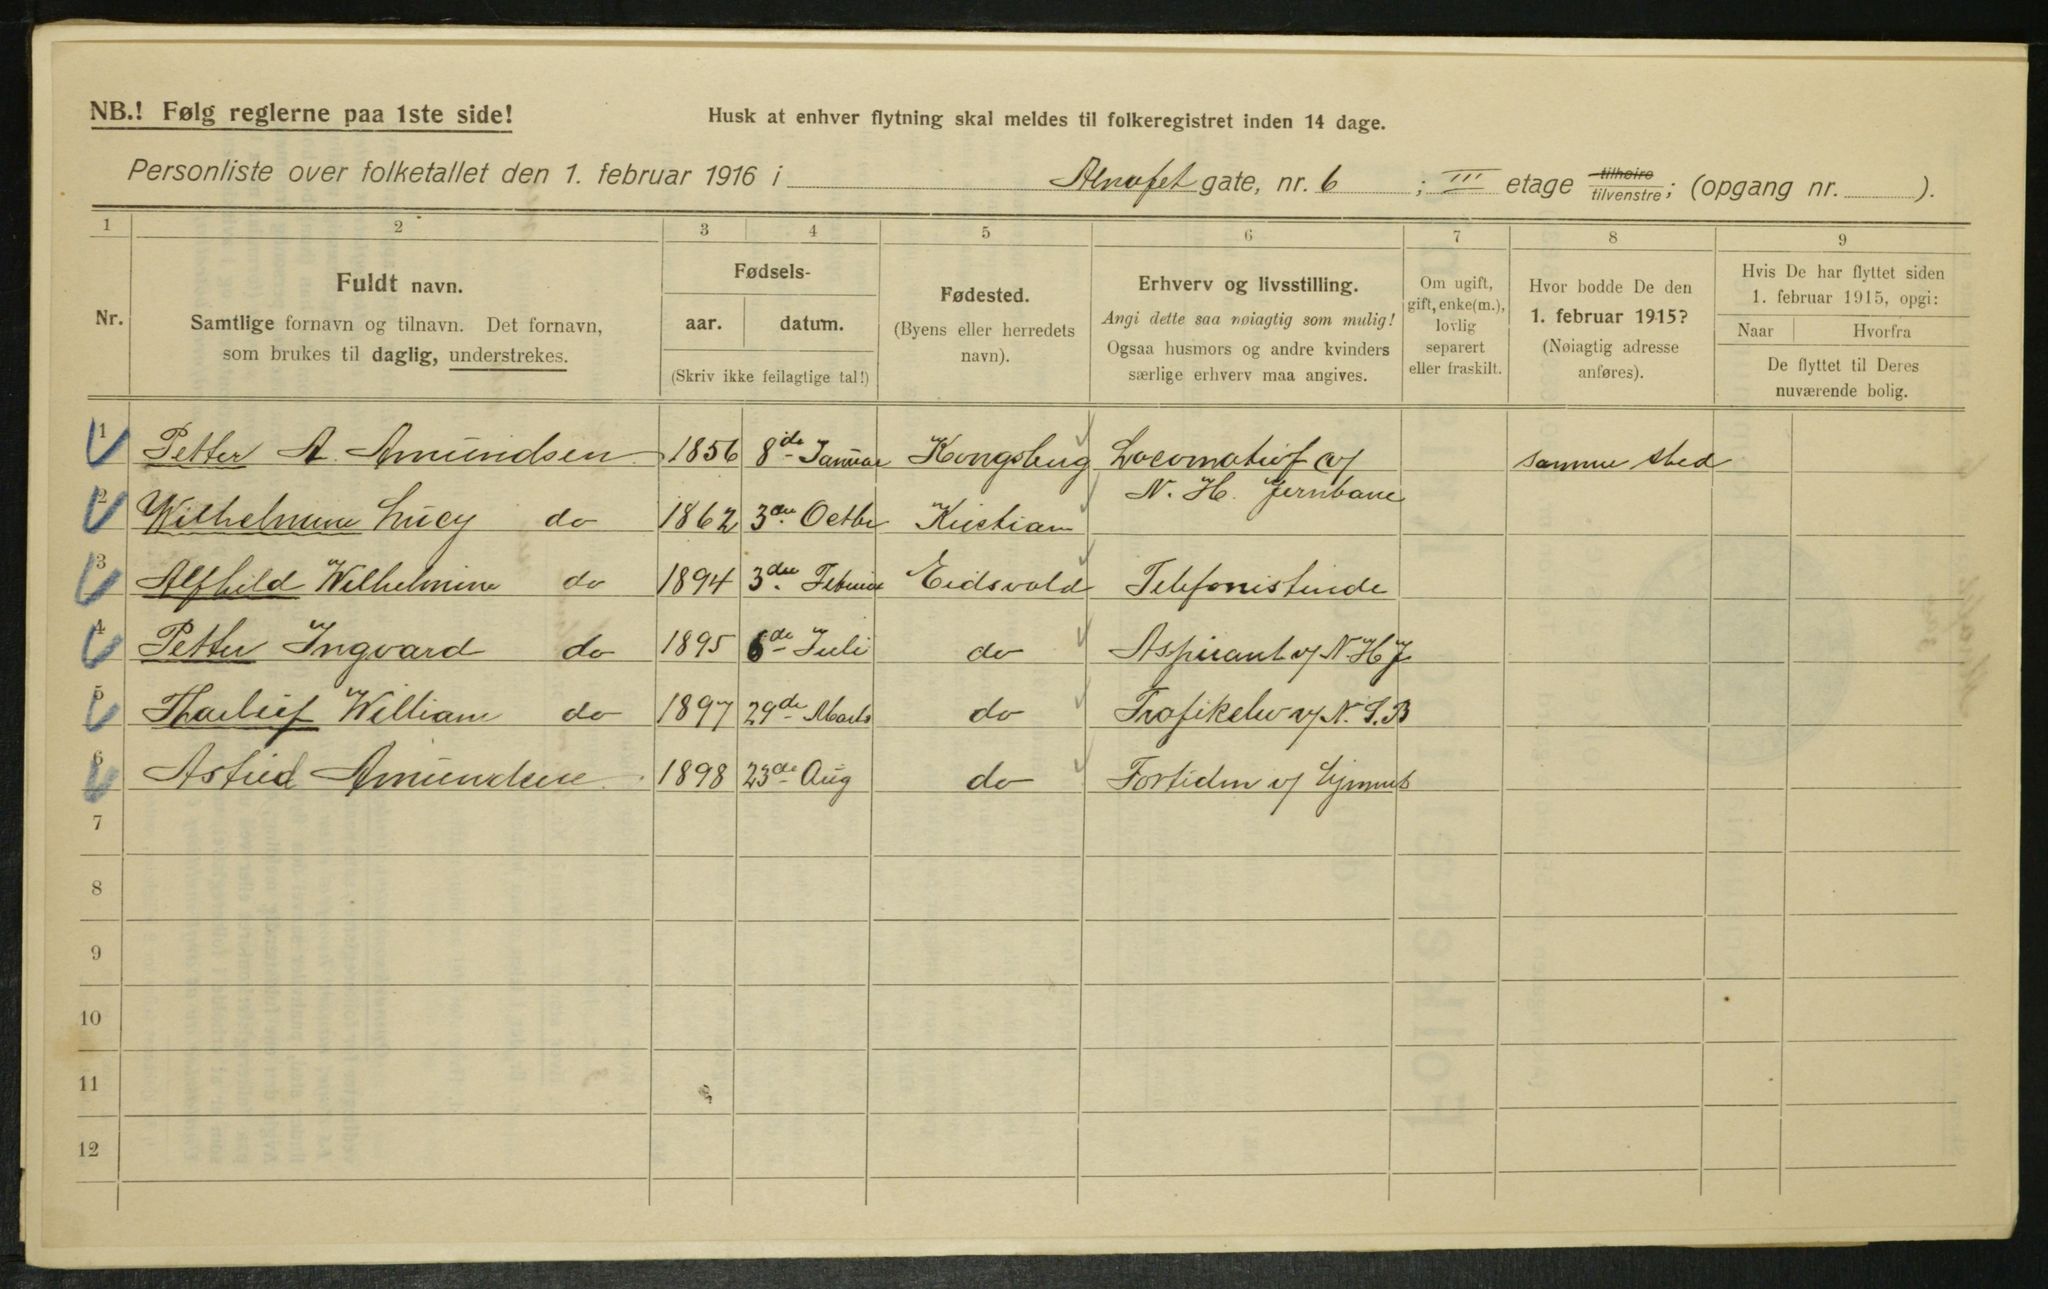 NB.! Følg reglerne paa 1ste side!
Husk at enhver flytning skal meldes til folkeregistret inden 14 dage.
Personliste over folketallet den 1. februar 1916 i Alnafet gate, nr. 6 ; III etage tilhøire tilvenstre; (opgang nr. ).
1 2 3 4 5 6 7 8 9
Nr.
Fuldt navn.
Samtlige fornavn og tilnavn. Det fornavn,
som brukes til daglig, understrekes.
Fødsels-
aar. datum.
(Skriv ikke feilagtige tal!)
Fødested.
(Byens eller herredets
navn).
Erhverv og livsstilling.
Angi dette saa nøiagtig som mulig!
Ogsaa husmors og andre kvinders
særlige erhverv maa angives.
Om ugift,
gift, enke(m.),
lovlig
separert
eller fraskilt.
Hvor bodde De den
1. februar 1915?
(Nøiagtig adresse
anføres).
Hvis De har flyttet siden
1. februar 1915, opgi:
Naar Hvorfra
De flyttet til Deres
nuværende bolig.
1 Petter A. Amundsen 1856 8de Januar Kongsberg Locomotivf v/ samme sted
N. H. Jernbane
2 Wilhelmine Lucy do 1862 3die Octbr Kristiam
3 Alfhild Wilhelmine do 1894 3die Februar Eidsvold Telefonistinde
4 Petter Ingvard do 1895 6de Juli do Aspirant v/ N. H J
5 Tharleif William do 1897 29de Marts do Trafikelev v/ N. S. B
6 Astrid Amundsen 1898 23de Aug do v/
7
8
9
10
11
12